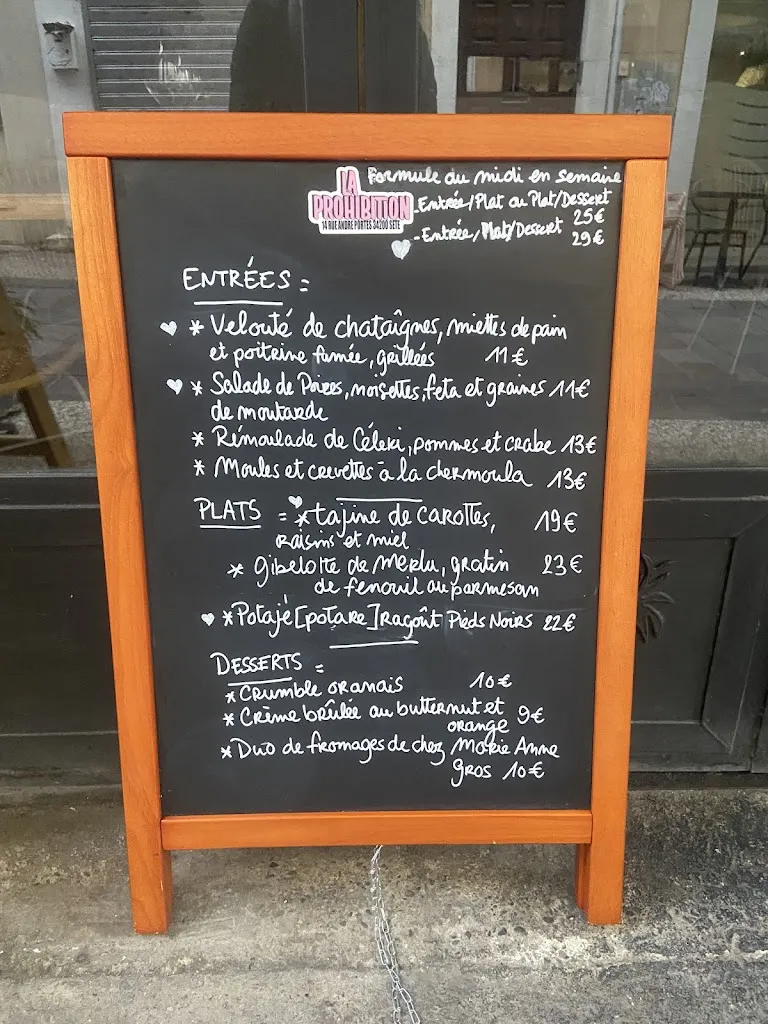 LA
PROHIBITION
14 RUE ANDRE PORTES 34200 SETE
Formule du midi en semaine
-Entrée/Plat ou Plat/Dessert
25€
-Entrée/Plat/Dessert
29€
ENTRÉES =
* Velouté de chataîgnes, miettes de pain
et poitrine fumée, grillées 11€
* Salade de Poires, noisettes, feta et graines 11€
de moutarde
* Rémoulade de Céleri, pommes et crabe 13€
* Moules et crevettes à la chermoula 13€
PLATS = * tajine de carottes, 19€
raisins et miel
* gibelotte de merlu, gratin 23€
de fenouil au parmesan
* Potajé [potaxe] ragoût Pieds Noirs 22€
DESSERTS =
* Crumble oranais 10€
* Crème brûlée au butternut et 9€
orange
* Duo de fromages de chez Marie Anne
gros 10€